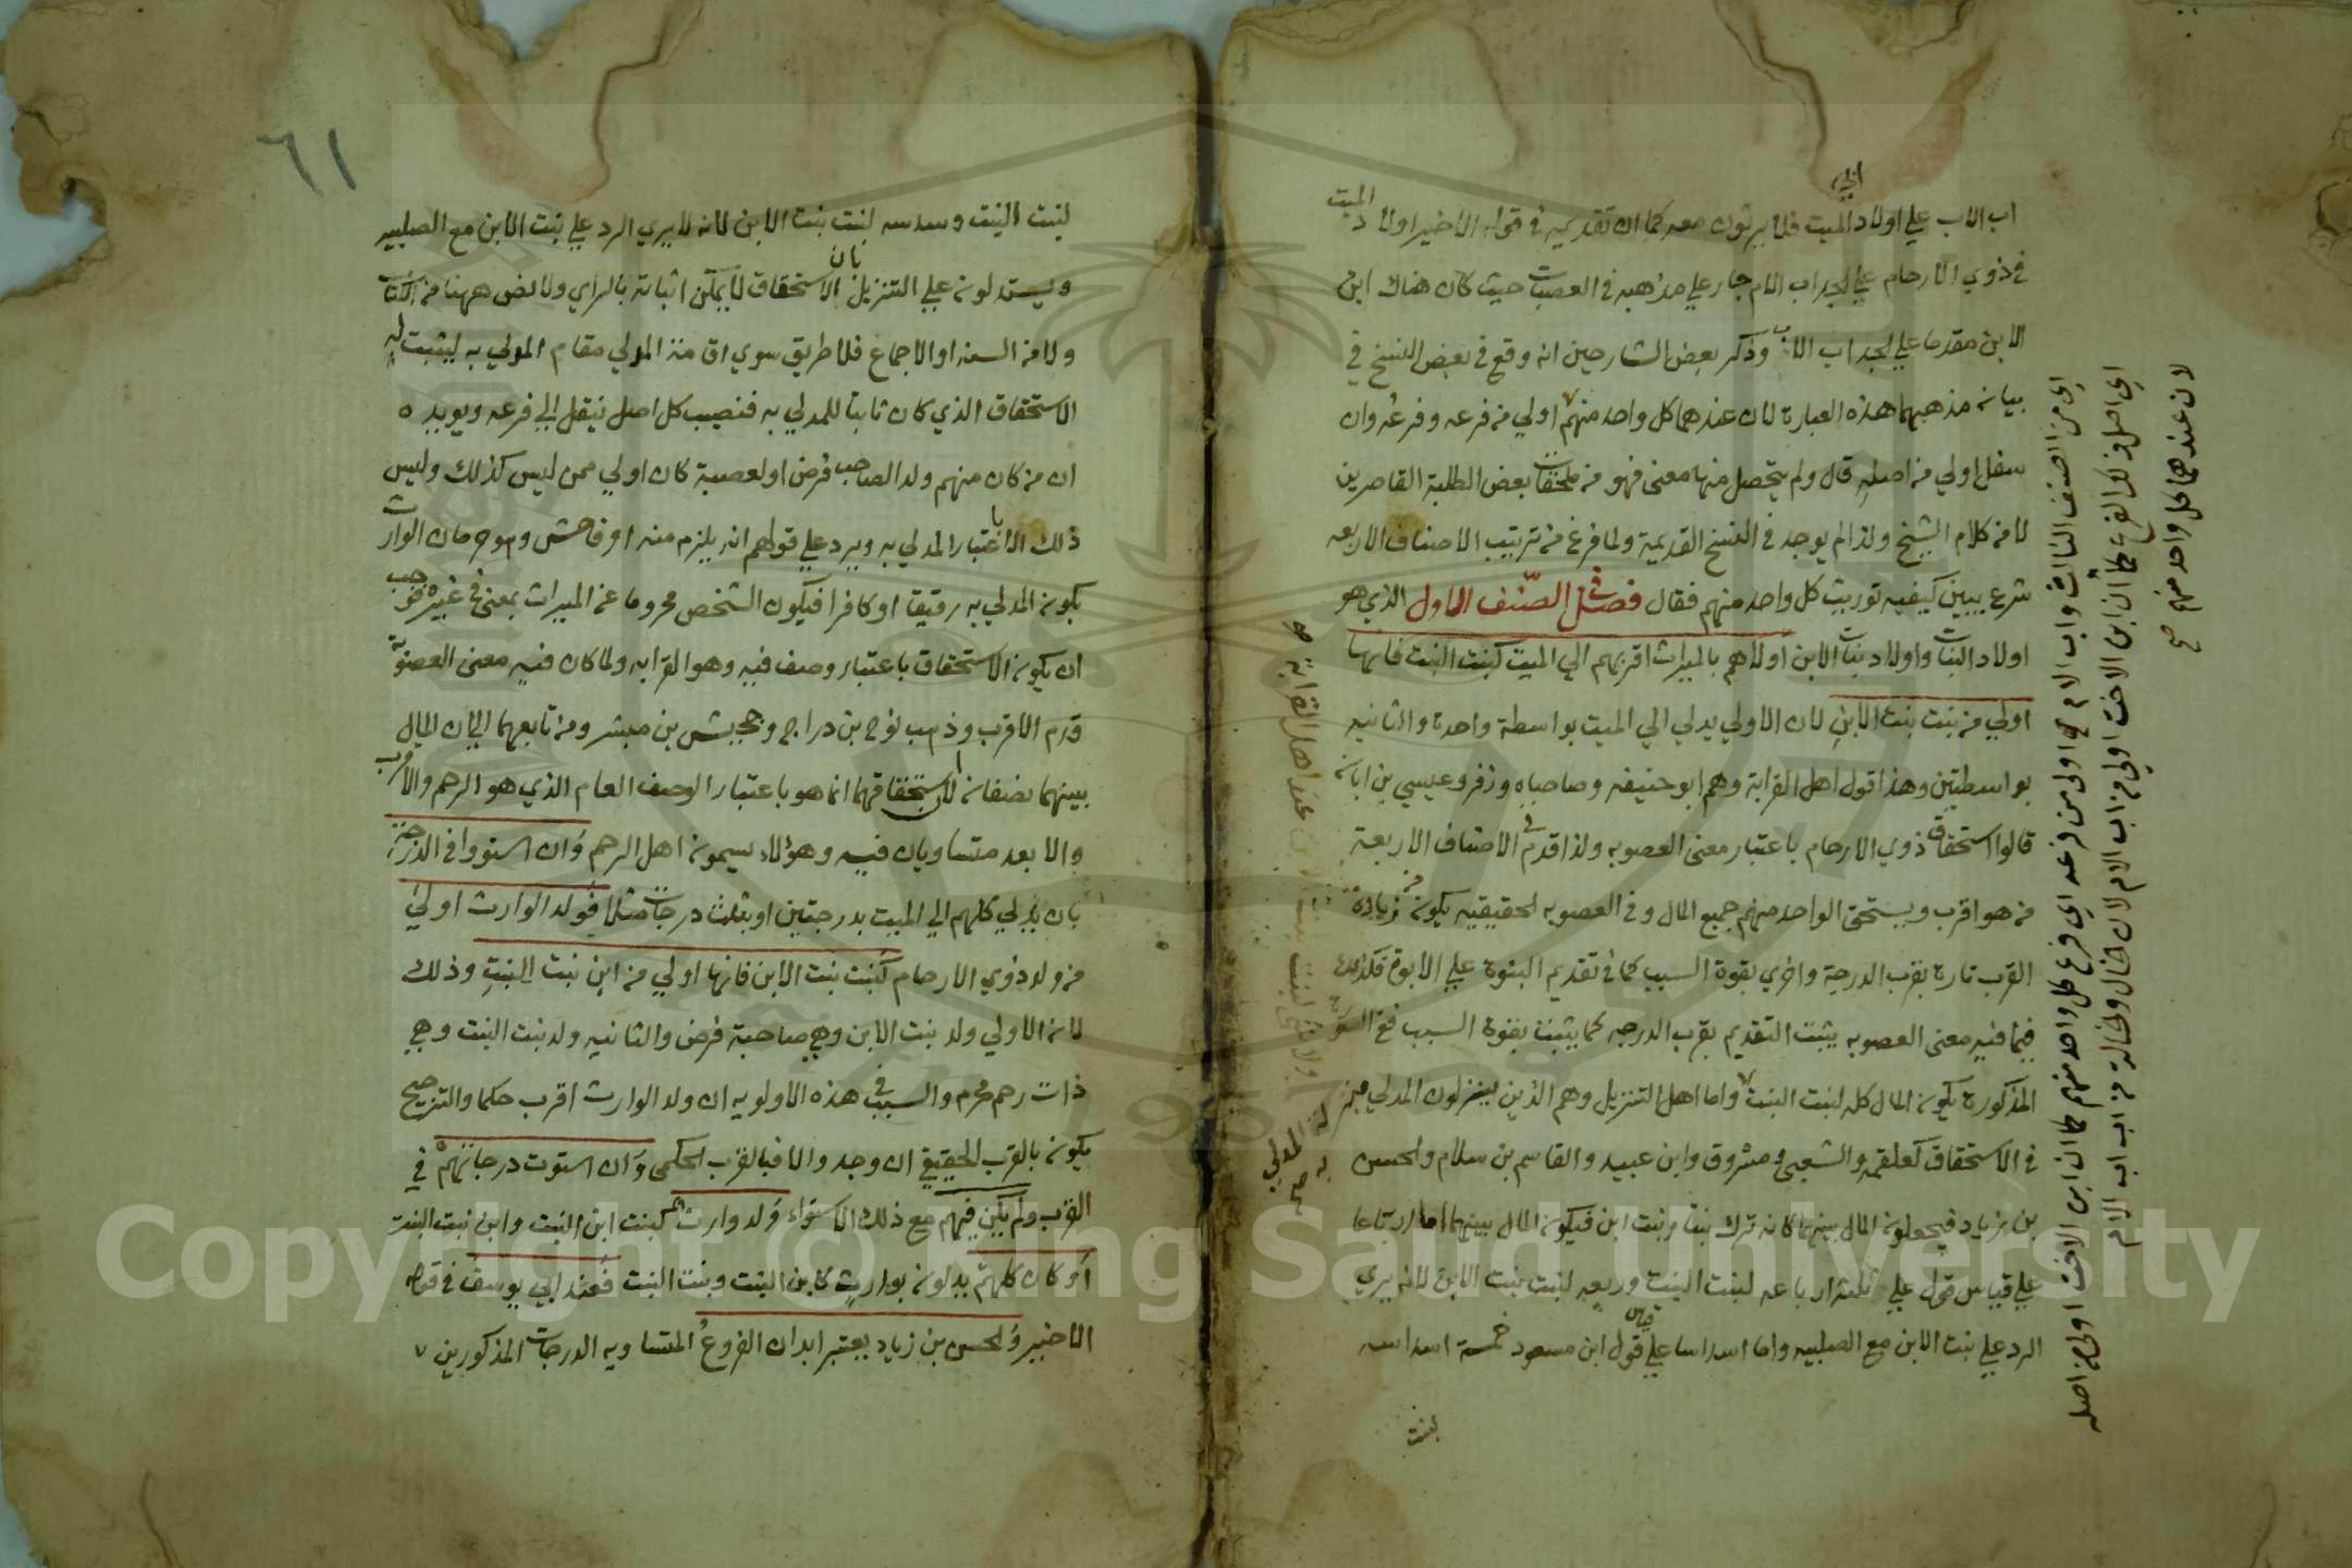 اب الاب علي اولاد الميت فلا يرثون معه كما ان تقديمه في قوله الاخير اولاد الميت
في ذوي الارحام علي الجد اب الام جار علي مذهبه في العصبات حيث كان هناك ابن
الابن مقدما علي الجد اب الاب وذكر بعض الشارحين انه وقع في بعض النسخ في
بيان مذهبهما هذه العبارة لان عندهما كل واحد منهم اولي من فرعه وفرعه وان
سفل اولي من اصله قال ولم يتحصل منها معنى فهو من ملحقات بعض الطلبة القاصرين
لا من كلام الشيخ ولذا لم يوجد في النسخ القديمة ولما فرغ من ترتيب الاصناف الاربعه
شرع يبين كيفيه توريث كل واحد منهم فقال فصل في الصنف الاول الذي هو
اولاد البنات واولاد بنات الابن اولاهم بالميراث اقربهم الي الميت كبنت البنت فانها
اولي من بنت بنت الابن لان الاولي يدلي الي الميت بواسطة واحدة والثانيه
بواسطتين وهذا قول اهل القرابة وهم ابو حنيفه وصاحباه وزفر وعيسي بن ابان
قالوا استحقاق ذوي الارحام باعتبار معنى العصوبه ولذا قدم في الاصناف الاربعة
من هو اقرب ويستحق الواحد منهم جميع المال وفي العصوبه الحقيقيه يكون زيادة
القرب تارة بقرب الدرجة واخري بقوة السبب كما في تقديم البنوة علي الابوة فكذلك
فيما فيه معنى العصوبه يثبت التقديم بقرب الدرجه كما يثبت بقوة السبب ففي الصورة
المذكورة يكون المال كله لبنت البنت واما اهل التنزيل وهم الذين ينزلون المدلي
في الاستحقاق كعلقمه والشعبي ومسروق وابن عبيد والقاسم بن سلام والحسن
بن زياد فيجعلون المال بينهما كانه ترك بنتا وبنت ابن فيكون المال بينهما اما ارباعا
علي قياس قول علي ثلثة ارباعه لبنت البنت وربعه لبنت بنت الابن لانه يري
الرد علي بنت الابن مع الصلبيه واما اسداسا علي قياس قول ابن مسعود خمسة اسداسه
لبنت
اي من الصنف الثالث واب الام اولي من فرعه اي فرع كل واحد منهم كما ان ابن الاخت اولي من اصله
اي اصل ذلك الفرع كما ان ابن الاخت اولي من اب الام لان الخال والخالة من اب اب الام
لان عندهما كل واحد منهم صح
عند اهل القرابة
المدلي به صح
٦١
لبنت البنت وسدسه لبنت بنت الابن لانه لا يري الرد علي بنت الابن مع الصلبيه
ويستدلون علي التنزيل بان الاستحقاق لا يمكن اثباته بالراي ولا نص ههنا من الكتاب
ولا من السنه او الاجماع فلا طريق سوي اقامة المدلي مقام المدلي به ليثبت له
الاستحقاق الذي كان ثابتا للمدلي به فنصيب كل اصل ينقل الي فرعه ويويده
ان من كان منهم ولد الصاحب فرض او لعصبة كان اولي ممن ليس كذلك وليس
ذلك الا باعتبار المدلي به ويرد علي قولهم انه يلزم منه امر فاحش وهو حرمان الوارث
بكون المدلي به رقيقا او كافرا فيكون الشخص محروما عن الميراث بمعنى في غيره فوجب
ان يكون الاستحقاق باعتبار وصف فيه وهو القرابه ولما كان فيه معنى العصوبة
قدم الاقرب وذهب نوح بن دراج وحبيش بن مبشر ومن تابعهما الي ان المال
بينهما نصفان لان استحقاقهما انما هو باعتبار الوصف العام الذي هو الرحم والاقرب
والابعد متساويان فيه وهؤلاء يسمون اهل الرحم وان استووا في الدرجة
بان يدلي كلهم الي الميت بدرجتين او بثلث درجات مثلا فولد الوارث اولي
من ولد ذوي الارحام كبنت بنت الابن فانها اولي من ابن بنت البنت وذلك
لان الاولي ولد بنت الابن وهي صاحبة فرض والثانيه ولد بنت البنت وهي
ذات رحم محرم والسبب في هذه الاولويه ان ولد الوارث اقرب حكما والترجيح
يكون بالقرب الحقيقي ان وجد والا فبالقرب الحكمي وان استوت درجاتهم في
القرب ولم يكن فيهم مع ذلك الاستواء ولد وارث كبنت ابن البنت وابن بنت البنت
او كان كلهم يدلون بوارث كابن البنت وبنت البنت فعند ابي يوسف في قوله
الاخير والحسن بن زياد يعتبر ابدان الفروع المتساويه الدرجات المذكورين